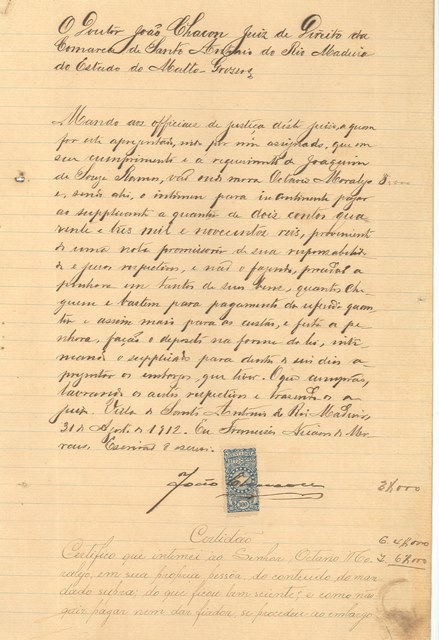 O Doutor João Chacon Juiz de Direito da
Comarca de Santo Antonio do Rio Madeira
do Estado do Matto-Grosso,
Mando aos officiaes de justiça deste juizo, a quem
for este apresentado, indo por mim assignado, que em
seu cumprimento e a requerimento de Joaquim
de Souza Ramos, vão onde mora Octavio Moralejo
e, sendo ahi, o intimem para incontinente pagar
ao supplicante a quantia de dois contos qua-
renta e tres mil e novecentos reis, proveniente
de uma nota promissoria de sua responsabilida-
de e juros respectivos, e não o fazendo, proceda a
penhora em tantos de seus bens, quantos che-
guem e bastem para pagamento da referida quan-
tia e assim mais para as custas, e feita a pe-
nhora, fação o deposito na forma da lei, inti-
mando o supplicado para dentro de seis dias a-
presentar os embargos, que tiver. O que cumprão,
lavrando os autos respectivos e trazendo-os a
juizo. Villa de Santo Antonio do Rio Madeira,
31 de Agosto de 1912. Eu Francisco
Escrivão o escrevi.
João Chacon
2$000
Certidão
6. 4$000
Certifico que intimei ao Senhor Octavio Mo-
7. 6$000
ralejo, em sua propria pessoa, do conteudo do man-
dado supra; do que ficou bem sciente; e como não
quiz pagar nem dar fiador, se procedeu ao embargo